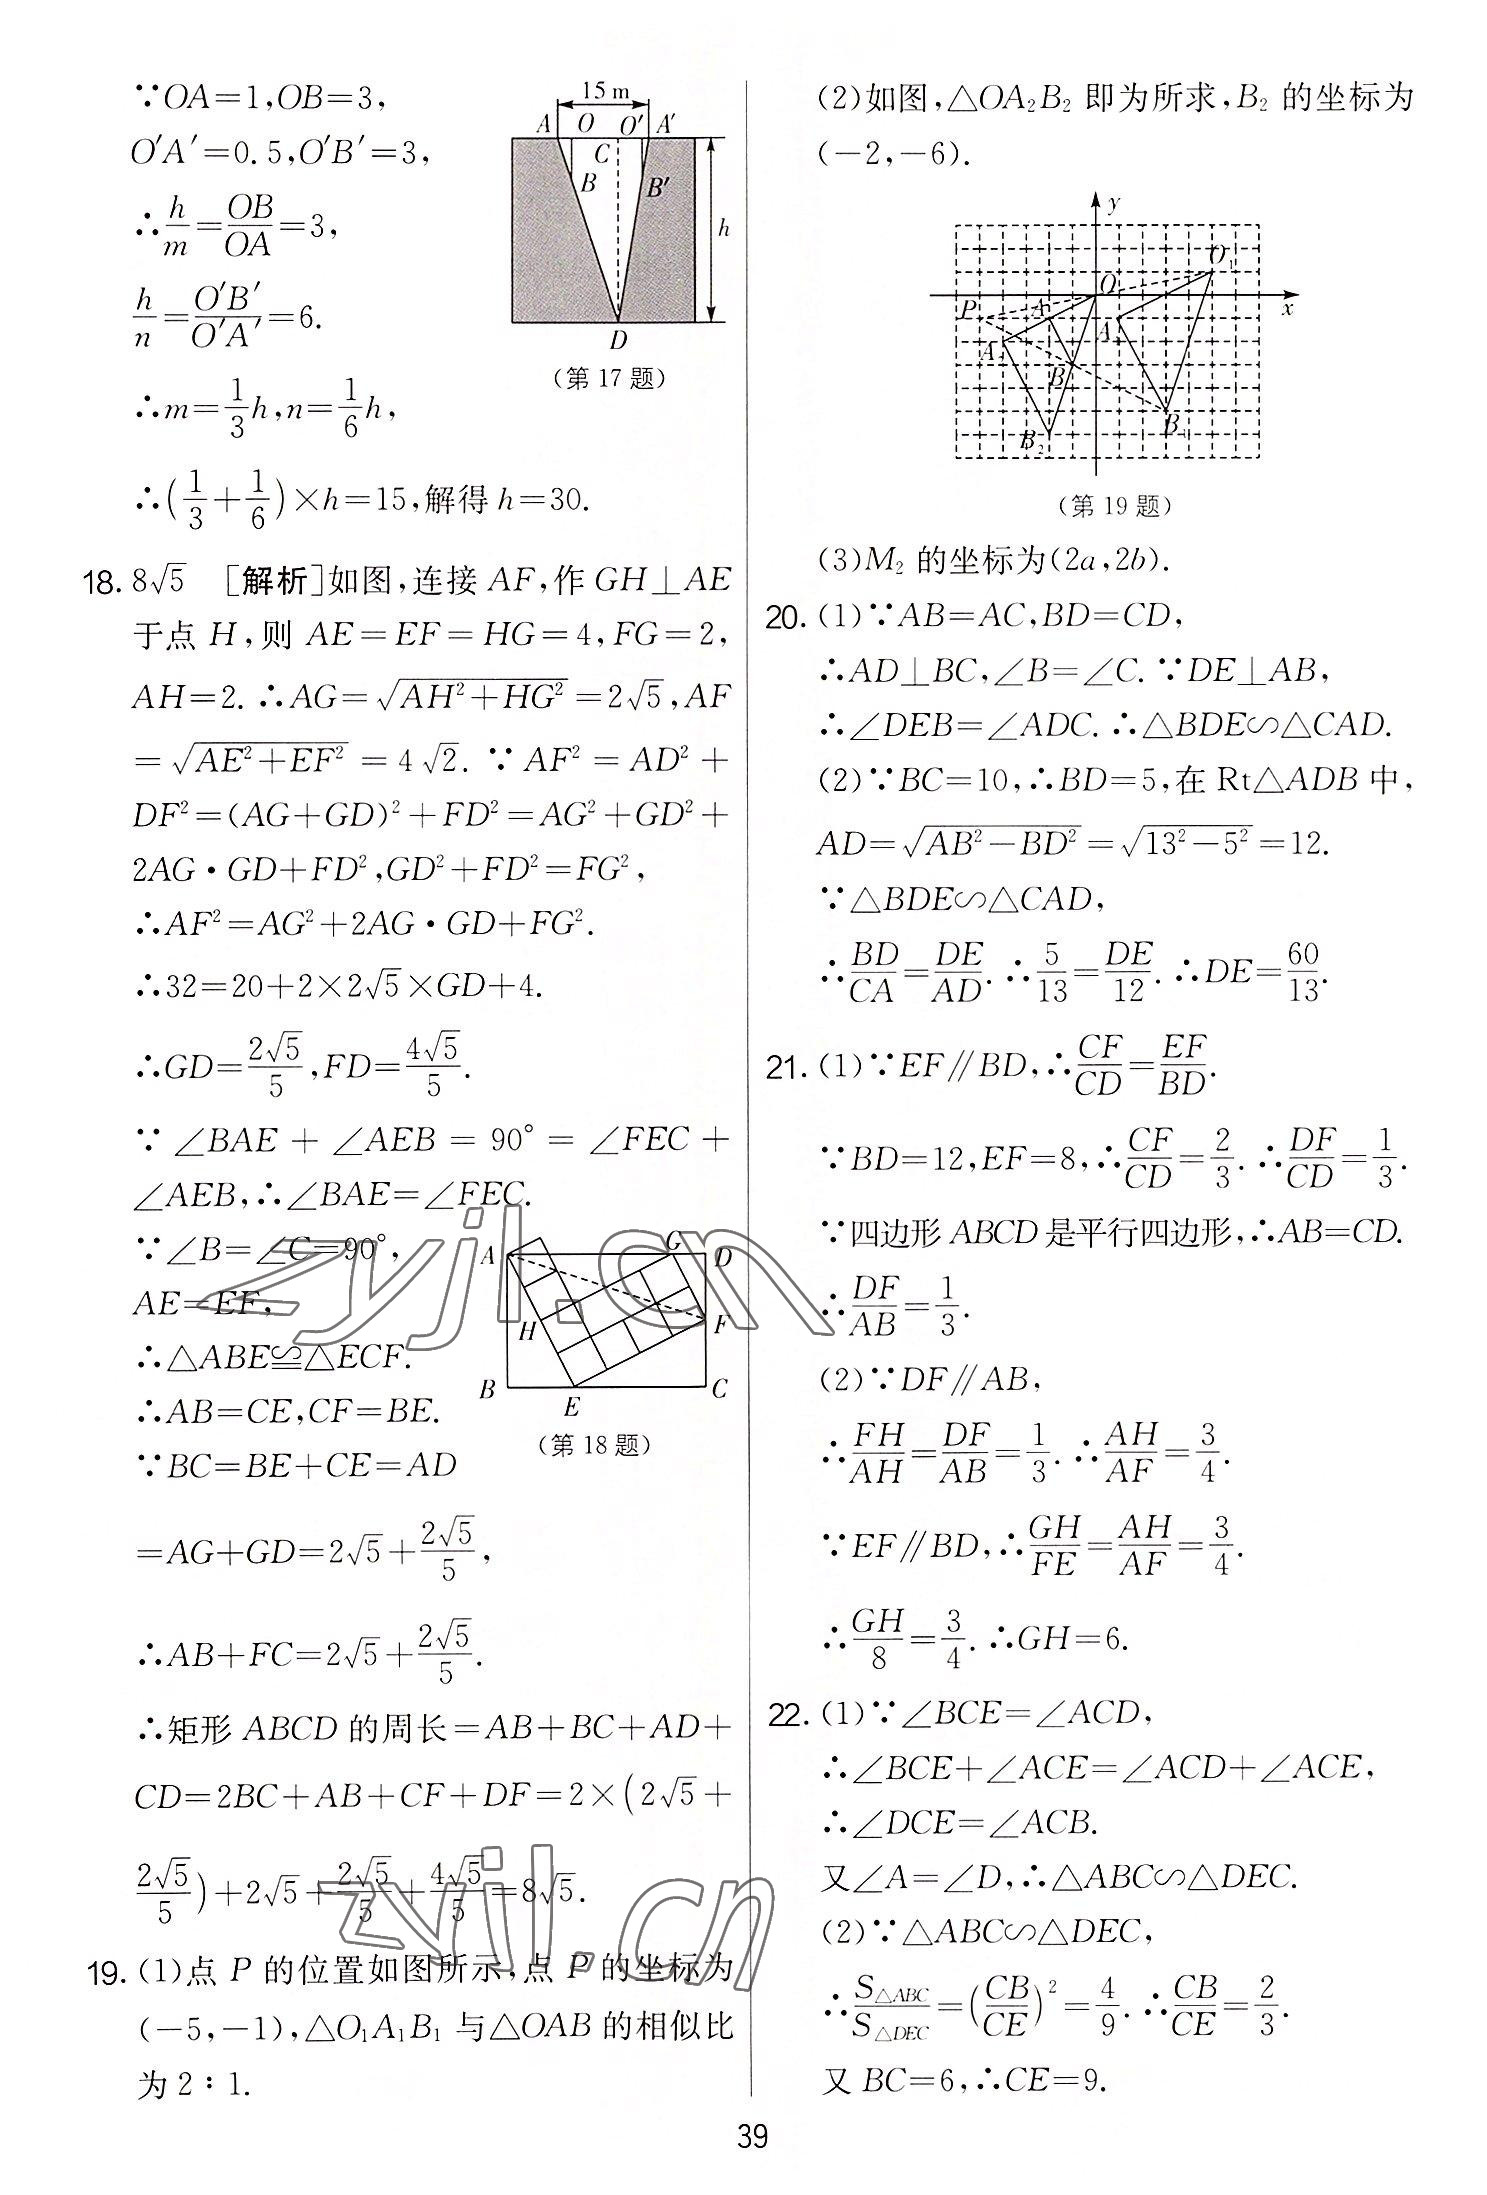 ∵OA=1,OB=3,
O′A′=0.5,O′B′=3,
∴h/m=OB/OA=3,
h/n=O′B′/O′A′=6.
∴m=1/3h,n=1/6h,
∴(1/3+1/6)×h=15,解得h=30.
15 m
A O O′ A′
C
B B′
h
D
(第17题)
18. 8√5 [解析]如图,连接AF,作GH⊥AE
于点H,则AE=EF=HG=4,FG=2,
AH=2.∴AG=√(AH²+HG²)=2√5,AF
=√(AE²+EF²)=4√2.∵AF²=AD²+
DF²=(AG+GD)²+FD²=AG²+GD²+
2AG·GD+FD²,GD²+FD²=FG²,
∴AF²=AG²+2AG·GD+FG².
∴32=20+2×2√5×GD+4.
∴GD=2√5/5,FD=4√5/5.
∵∠BAE+∠AEB=90°=∠FEC+
∠AEB,∴∠BAE=∠FEC.
∵∠B=∠C=90°,
AE=EF,
∴△ABE≌△ECF.
∴AB=CE,CF=BE.
∵BC=BE+CE=AD
=AG+GD=2√5+2√5/5,
∴AB+FC=2√5+2√5/5.
A G D
H F
B E C
(第18题)
∴矩形ABCD的周长=AB+BC+AD+
CD=2BC+AB+CF+DF=2×(2√5+
2√5/5)+2√5+2√5/5+4√5/5=8√5.
19. (1)点P的位置如图所示,点P的坐标为
(-5,-1),△O₁A₁B₁与△OAB的相似比
为2:1.
(2)如图,△OA₂B₂即为所求,B₂的坐标为
(-2,-6).
y
O₁
O
x
P A A₁
A₂
B
B₂ B₁
(第19题)
(3)M₂的坐标为(2a,2b).
20. (1)∵AB=AC,BD=CD,
∴AD⊥BC,∠B=∠C.∵DE⊥AB,
∴∠DEB=∠ADC.∴△BDE∽△CAD.
(2)∵BC=10,∴BD=5,在Rt△ADB中,
AD=√(AB²-BD²)=√(13²-5²)=12.
∵△BDE∽△CAD,
∴BD/CA=DE/AD.∴5/13=DE/12.∴DE=60/13.
21. (1)∵EF∥BD,∴CF/CD=EF/BD.
∵BD=12,EF=8,∴CF/CD=2/3.∴DF/CD=1/3.
∵四边形ABCD是平行四边形,∴AB=CD.
∴DF/AB=1/3.
(2)∵DF∥AB,
∴FH/AH=DF/AB=1/3.∴AH/AF=3/4.
∵EF∥BD,∴GH/FE=AH/AF=3/4.
∴GH/8=3/4.∴GH=6.
22. (1)∵∠BCE=∠ACD,
∴∠BCE+∠ACE=∠ACD+∠ACE,
∴∠DCE=∠ACB.
又∠A=∠D,∴△ABC∽△DEC.
(2)∵△ABC∽△DEC,
∴S△ABC/S△DEC=(CB/CE)²=4/9.∴CB/CE=2/3.
又BC=6,∴CE=9.
39
zyjl.cn
zyjl.cn